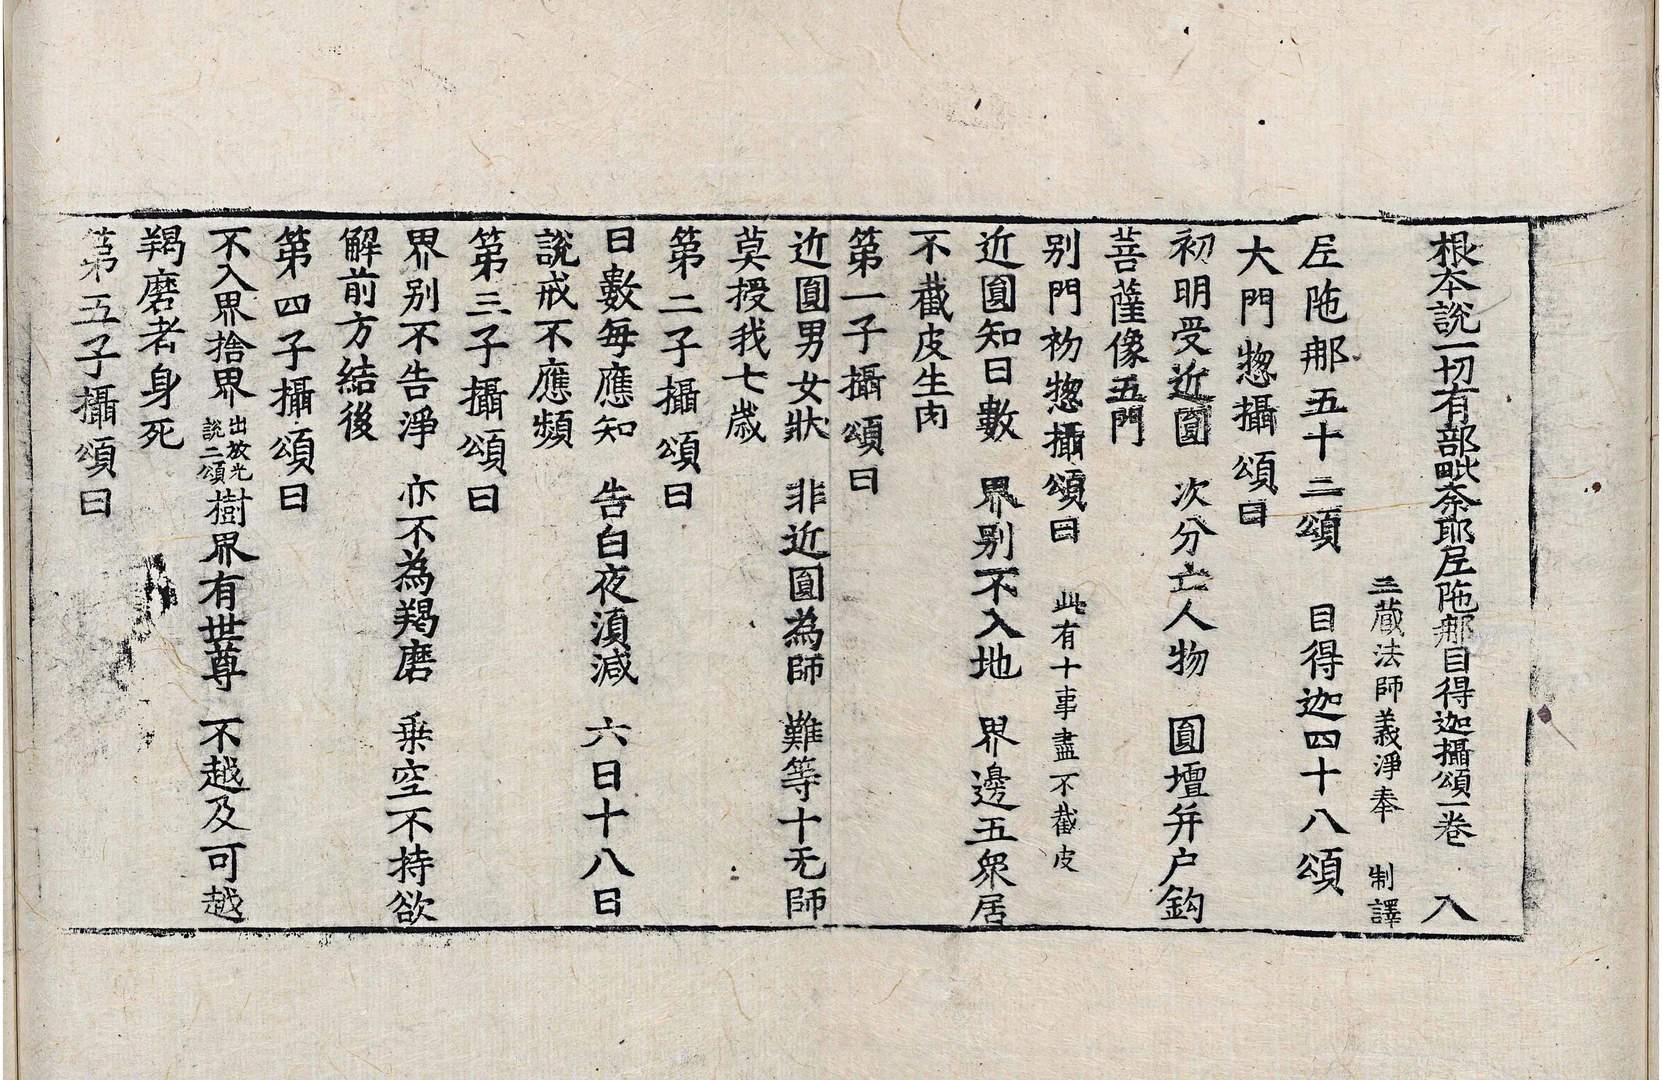 根夲說一切有部毗柰耶𡰱陁𨚗目得迦攝頌一巻 入
三藏法師義淨奉 制譯
𡰱陁𨚗五十二頌 目得迦四十八頌
大門惣攝頌曰
初明受近圓 次分亡人物 圓壇并户鈎
菩薩像五門
别門初惣攝頌曰 此有十事盡不截皮
近圓知日數 界别不入地 界邊五衆居
不截皮生肉
第一子攝頌曰
近圓男女狀 非近圓為師 難等十无師
莫授我七歲
第二子攝頌曰
日數每應知 告白夜湏減 六日十八日
說戒不應頻
第三子攝頌曰
界别不告淨 亦不為羯磨 乗空不持欲
解前方結後
第四子攝頌曰
不入界捨界 出放光說二頌 樹界有世尊 不越及可越
羯磨者身死
第五子攝頌曰